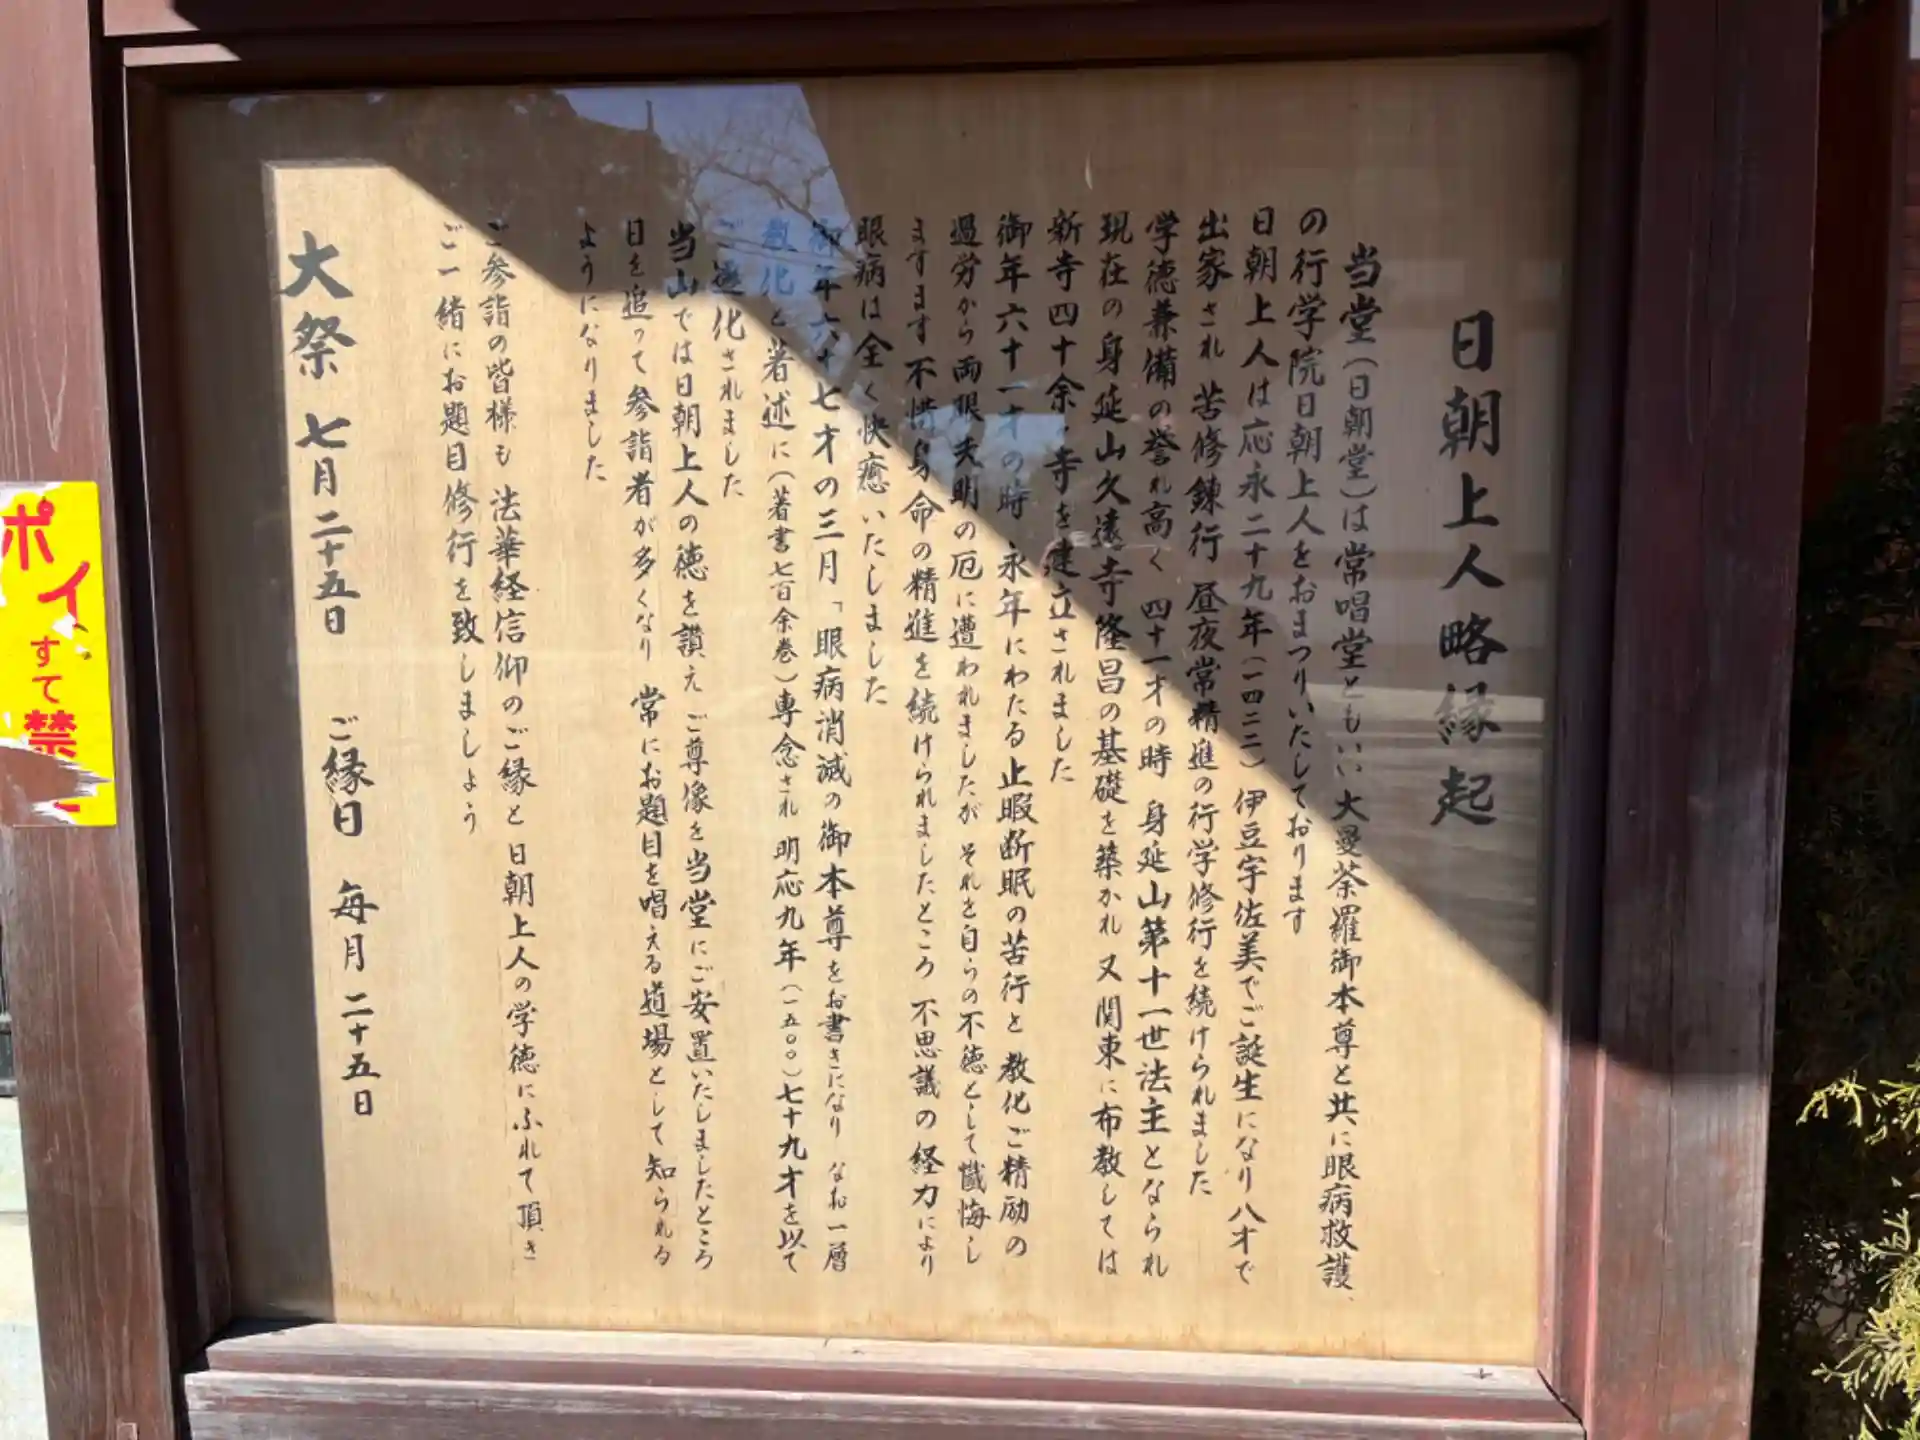 日朝上人略縁起
当堂（日朝堂）は常唱堂ともいい 大曼荼羅御本尊と共に眼病救護
の行学院日朝上人をおまつりいたしております
日朝上人は応永二十九年（一四二二）伊豆宇佐美でご誕生になり 八才で
出家され 苦修錬行 昼夜常精進の行学修行を続けられました
学徳兼備の誉れ高く 四十一才の時 身延山第十一世法主となられ
現在の身延山久遠寺隆昌の基礎を築かれ 又 関東に布教しては
新寺四十余ヶ寺を建立されました
御年六十一才の時 永年にわたる止暇断眠の苦行と 教化ご精励の
過労から 両眼失明の厄に遭われましたが それを自らの不徳として懺悔し
ますます不惜身命の精進を続けられましたところ 不思議の経力により
眼病は全く快癒いたしました
御年六十七才の三月「眼病消滅の御本尊をお書きになり なお一層
教化と著述に（著書七百余巻）専念され 明応九年（一五〇〇）七十九才を以て
ご遷化されました
当山では日朝上人の徳を讃え ご尊像を当堂にご安置いたしましたところ
日を追って参詣者が多くなり 常にお題目を唱える道場として知られる
ようになりました
ご参詣の皆様も 法華経信仰のご縁と日朝上人の学徳にふれて頂き
ご一緒にお題目修行を致しましょう
大祭 七月二十五日 ご縁日 毎月二十五日
ポイ
すて
禁